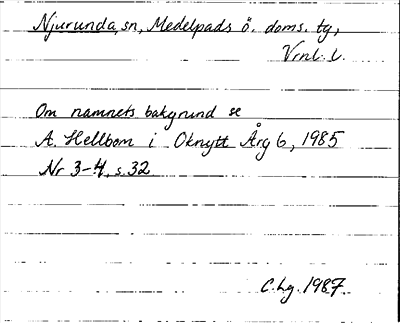 Njurunda, sn, Medelpads ö. doms. tg,
Vrnl. l.
Om namnets bakgrund se
A. Hellbom i Oknytt Årg 6, 1985
Nr 3-4, s. 32
C.Lg. 1987.